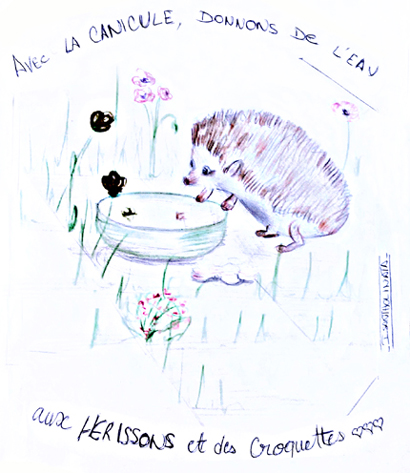 AVEC LA CANICULE, DONNONS DE L'EAU
aux HERISSONS et des Croquettes ♡♡♡